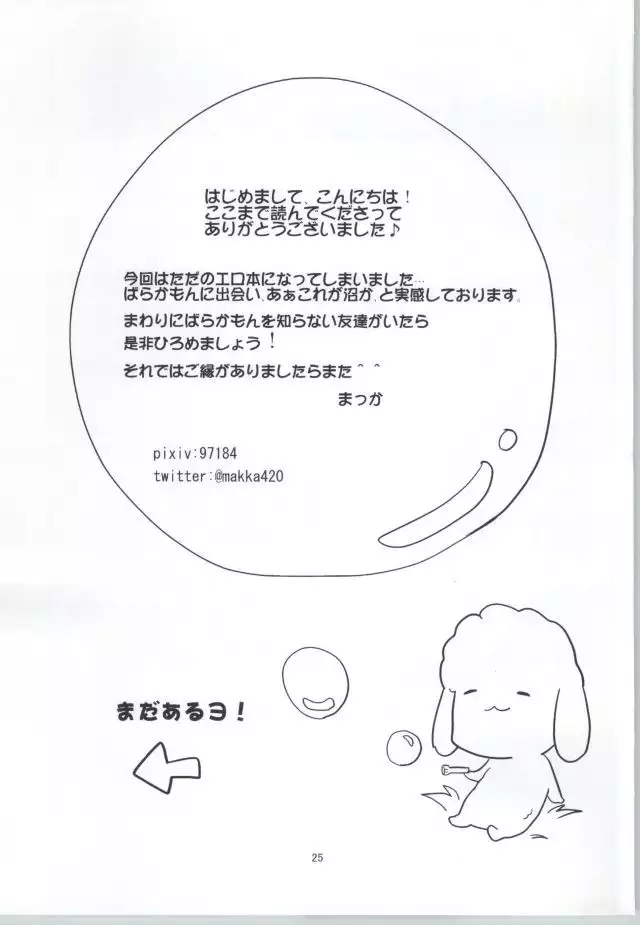 はじめまして、こんにちは！
ここまで読んでくださって
ありがとうございました♪
今回はただのエロ本になってしまいました…
ばらかもんに出会い、あぁこれが沼か、と実感しております。
まわりにばらかもんを知らない友達がいたら
是非ひろめましょう！
それではご縁がありましたらまた＾＾
まっか
pixiv:97184
twitter:@makka420
まだあるヨ！
25